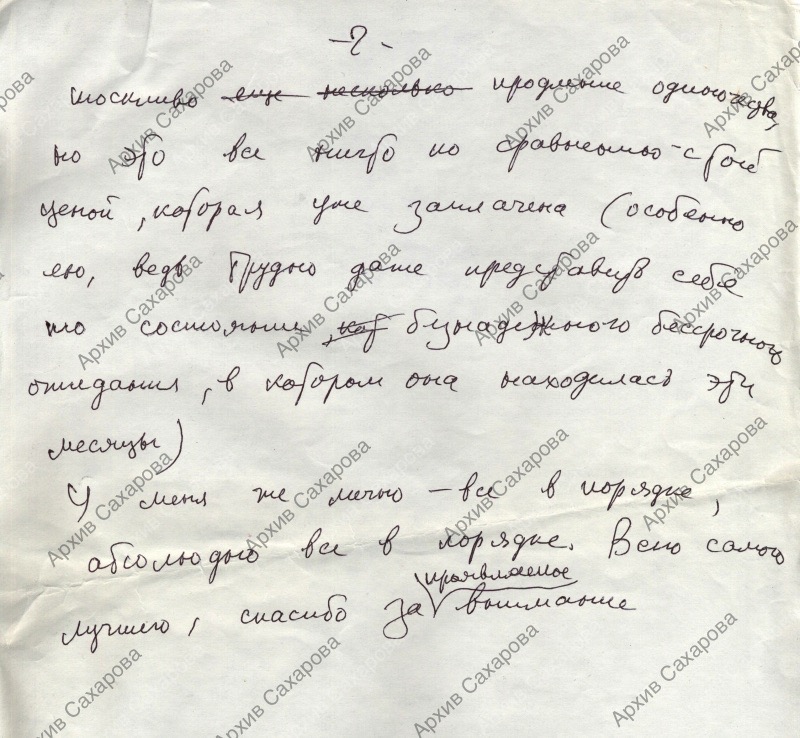 -2-
тоскливо ~~еще несколько~~ продление одиночества,
но это все ничто по сравнению с той
ценой, которая уже заплачена (особенно
ею, ведь трудно даже представить себе
то состояние ~~, кот~~ безнадежного бессрочного
ожидания, в котором она находилась эти
месяцы)
У меня же лично – все в порядке,
абсолютно все в порядке. Всего самого
лучшего, спасибо за проявляемое внимание
Архив Сахарова